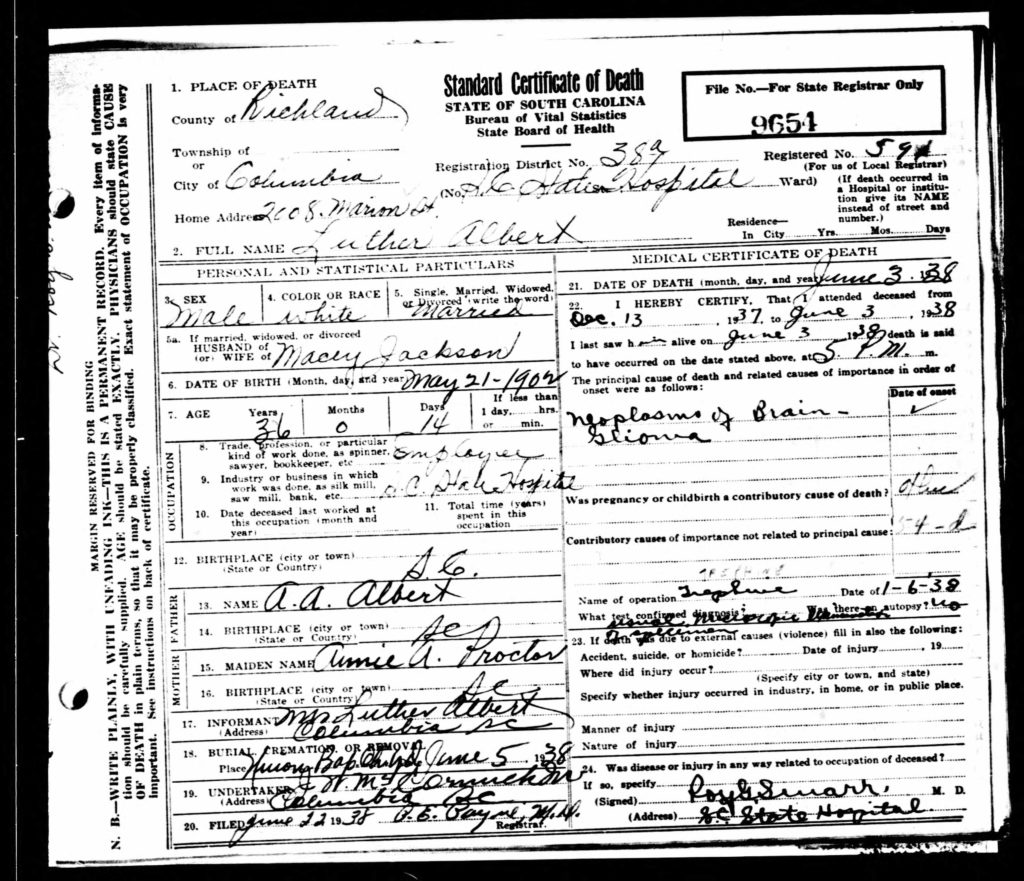 Standard Certificate of Death
STATE OF SOUTH CAROLINA
Bureau of Vital Statistics
State Board of Health
File No.—For State Registrar Only
9654
1. PLACE OF DEATH
County of Richland
Township of
or
City of Columbia
Registration District No. 38a
Registered No.
(For us of Local Registrar)
(No. S.C. State Hospital Ward)
(If death occurred in a Hospital or institution give its NAME instead of street and number.)
Home Address 2008 Marion St.
Residence—
In City Yrs. Mos. Days
2. FULL NAME Luther Albert
PERSONAL AND STATISTICAL PARTICULARS
3. SEX
Male
4. COLOR OR RACE
white
5. Single, Married, Widowed, or Divorced (write the word)
Married
5a. If married, widowed, or divorced
HUSBAND OF
(or) WIFE OF Macey Jackson
6. DATE OF BIRTH (Month, day, and year) May 21-1902
7. AGE Years Months Days If less than
1 day, hrs.
or min.
36 0 14
OCCUPATION
8. Trade, profession, or particular
kind of work done, as spinner,
sawyer, bookkeeper, etc. Employee
9. Industry or business in which
work was done, as silk mill,
saw mill, bank, etc. S.C. State Hospital
10. Date deceased last worked at
this occupation (month and
year)
11. Total time (years)
spent in this
occupation
12. BIRTHPLACE (city or town)
(State or Country) S.C.
FATHER
13. NAME A.A. Albert
14. BIRTHPLACE (city or town)
(State or Country) SC
MOTHER
15. MAIDEN NAME Annie A. Proctor
16. BIRTHPLACE (city or town)
(State or Country) SC
17. INFORMANT Mrs Luther Albert
(Address) Columbia SC
18. BURIAL, CREMATION, OR REMOVAL
Place Bap. June 5, 1938
19. UNDERTAKER
(Address) Columbia SC
20. FILED June 22 1938 Payne, M.D.
Registrar.
MEDICAL CERTIFICATE OF DEATH
21. DATE OF DEATH (month, day, and year) June 3, 1938
22. I HEREBY CERTIFY, That I attended deceased from
Dec. 13, 1937, to June 3, 1938
I last saw him alive on June 3 1938, death is said
to have occurred on the date stated above, at 5 P.M. m.
The principal cause of death and related causes of importance in order of
onset were as follows:
Date of onset
Neoplasm of Brain—
Glioma
Was pregnancy or childbirth a contributory cause of death?
Contributory causes of importance not related to principal cause:
54-d
Name of operation Trephine Date of 1-6-38
What test confirmed diagnosis? Was there an autopsy? no
of specimen
23. If death was due to external causes (violence) fill in also the following:
Accident, suicide, or homicide? Date of injury , 19
Where did injury occur?
(Specify city or town, and state)
Specify whether injury occurred in industry, in home, or in public place.
Manner of injury
Nature of injury
24. Was disease or injury in any way related to occupation of deceased?
If so, specify
(Signed) M. D.
(Address) S.C. State Hospital
MARGIN RESERVED FOR BINDING
N. B.—WRITE PLAINLY, WITH UNFADING INK—THIS IS A PERMANENT RECORD. Every item of information should be carefully supplied. AGE should be stated EXACTLY. PHYSICIANS should state CAUSE OF DEATH in plain terms, so that it may be properly classified. Exact statement of OCCUPATION is very important. See instructions on back of certificate.